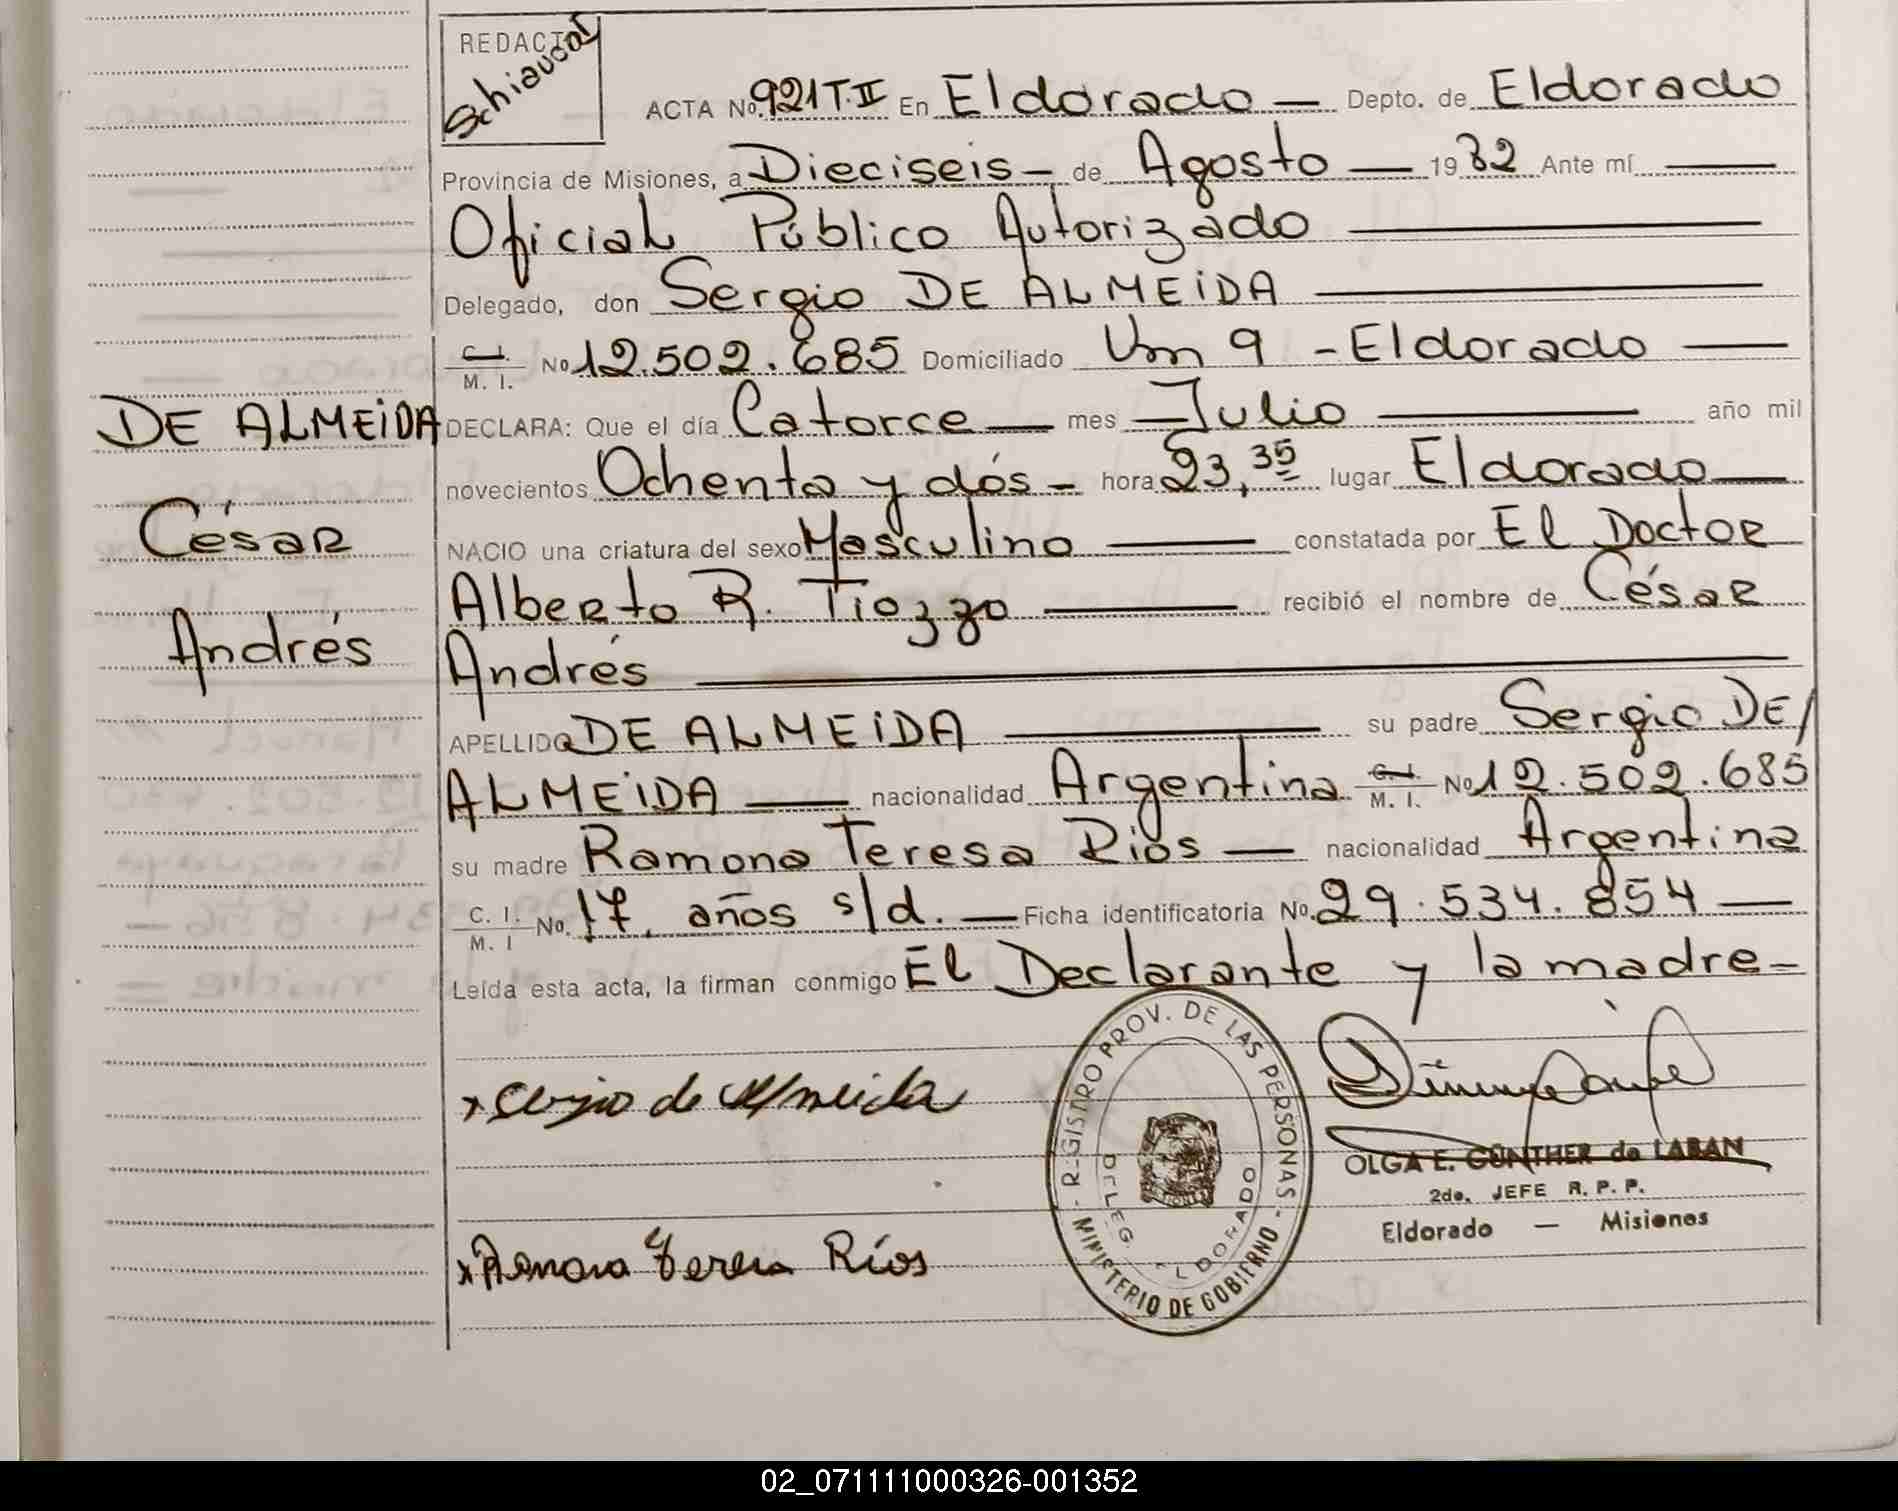 REDACTO
Schiaucoi
ACTA No. 921 T.II En Eldorado — Depto. de Eldorado
Provincia de Misiones, a Dieciseis — de Agosto — 1982 Ante mí
Oficial Público Autorizado
Delegado, don Sergio DE ALMEIDA
C. I. M. I. No 12.502.685 Domiciliado Km 9 - Eldorado
DE ALMEIDA
César
Andrés
DECLARA: Que el día Catorce — mes Julio — año mil
novecientos Ochenta y dós - hora 23,35 lugar Eldorado
NACIO una criatura del sexo Masculino — constatada por El Doctor
Alberto R. Tiozzo — recibió el nombre de César
Andrés
APELLIDO DE ALMEIDA — su padre Sergio DE/
ALMEIDA — nacionalidad Argentina C. I. M. I. No 12.502.685
su madre Ramona Teresa Rios — nacionalidad Argentina
C. I. M. I No. 17. años s/d. — Ficha identificatoria No. 29.534.854
Leída esta acta, la firman conmigo El Declarante y la madre-
x Sergio de Almeida
x Ramona Teresa Ríos
REGISTRO PROV. DE LAS PERSONAS
MINISTERIO DE GOBIERNO
DELEG. ELDORADO
OLGA E. GUNTHER de LABAN
2do. JEFE R. P. P.
Eldorado — Misiones
02_071111000326-001352